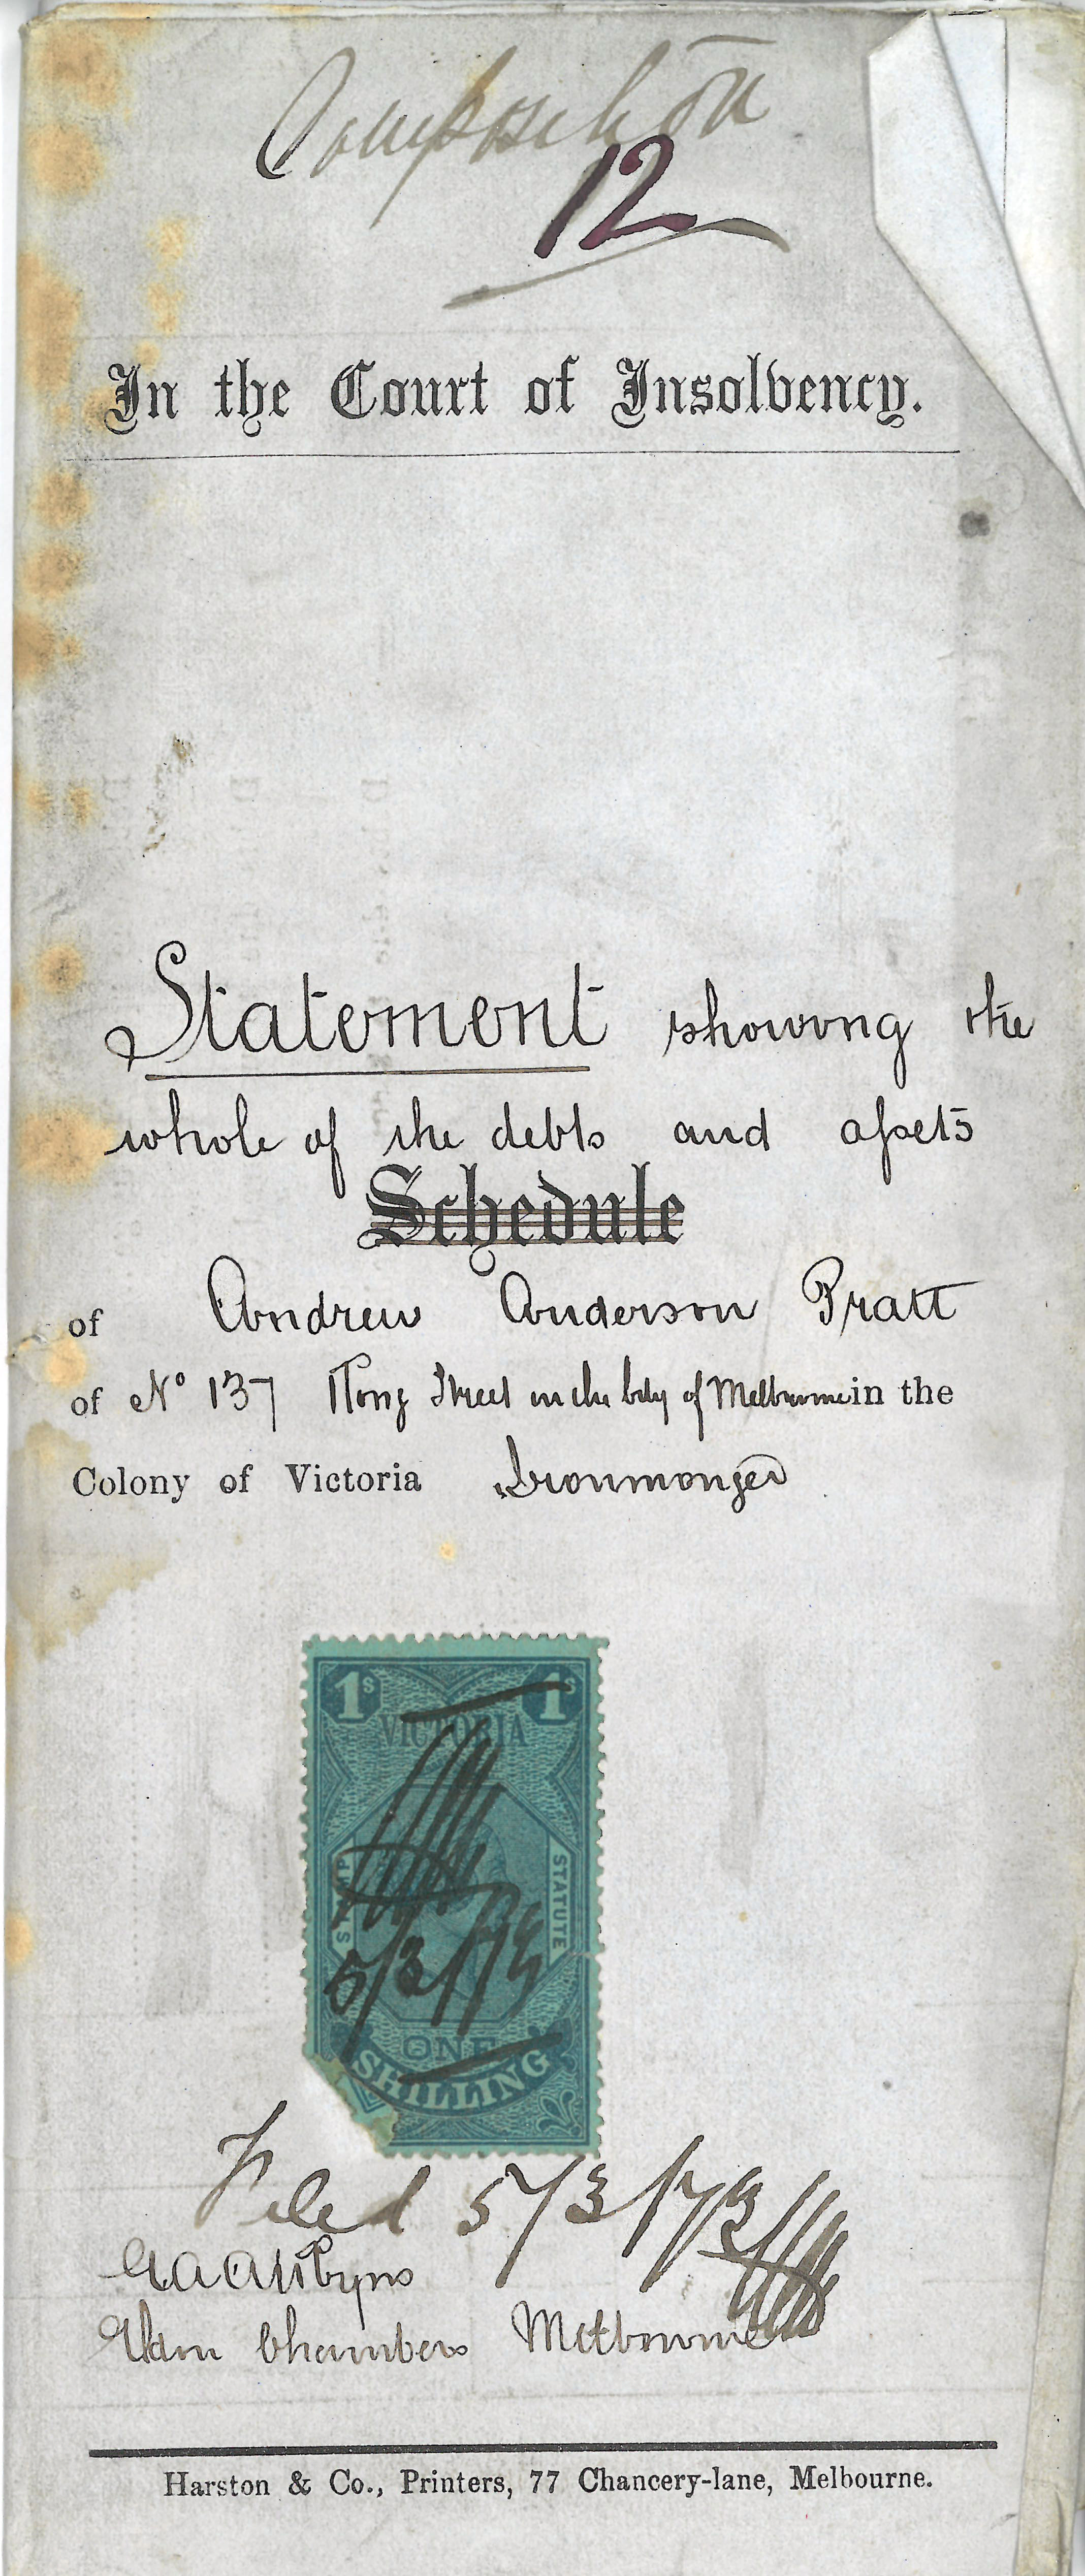 Composition
12
In the Court of Insolvency.
Statement showing the
whole of the debts and assets
Schedule
of Andrew Anderson Pratt
of No 137 King Street in the City of Melbourne in the
Colony of Victoria Ironmonger
1s 1s
VICTORIA
STAMP STATUTE
5/3/79
ONE
SHILLING
Filed 5/3/79
Chambers Melbourne
Harston & Co., Printers, 77 Chancery-lane, Melbourne.